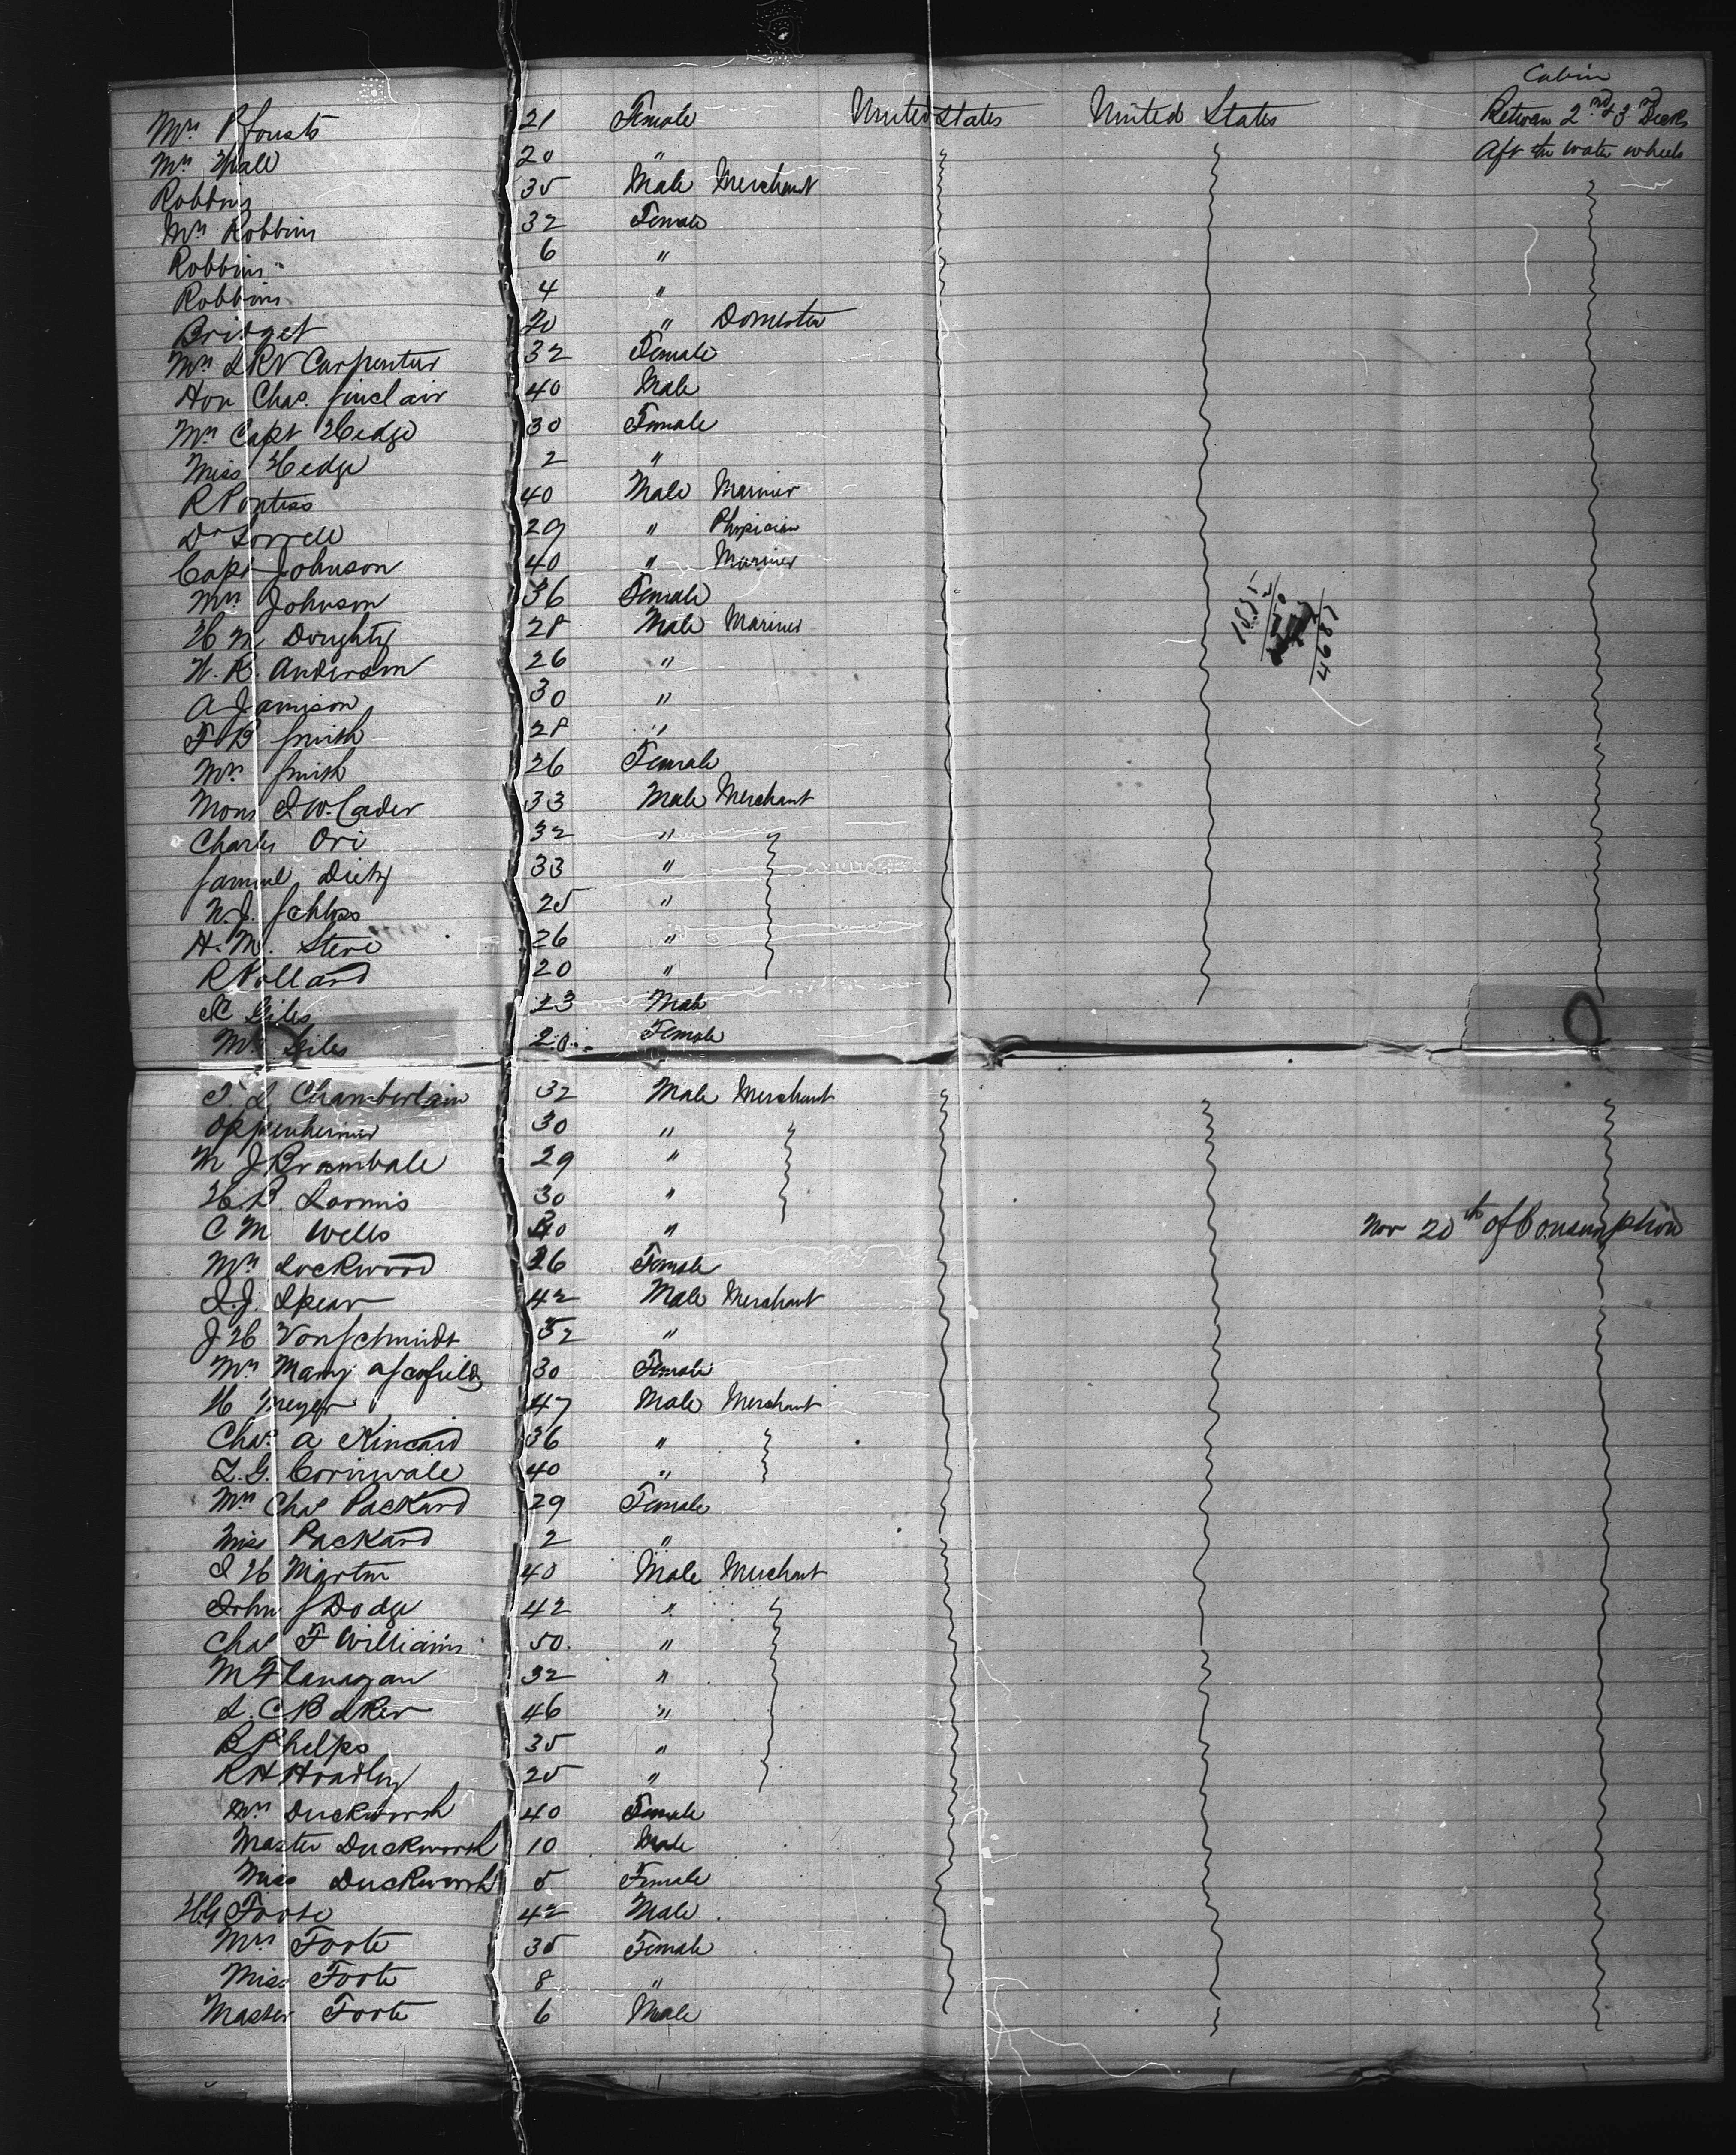 Cabin
Mrs Pfouts 21 Female United States United States Between 2nd & 3rd Decks
Mrs Hall 20 " Aft the water wheels
Robbins 35 Male Merchant
Mrs Robbins 32 Female
Robbins 6 "
Robbins 4 "
Bridget 20 " Domestic
Mrs Carpenter 32 Female
Hon Chas. Sinclair 40 Male
Mrs Capt Hedge 30 Female
Miss Hedge 2 "
R 40 Male Mariner
Dr Sorrell 29 " Physician
Capt Johnson 40 " Mariner
Mrs Johnson 36 Female
H M Doughty 28 Male Mariner
W. R. Anderson 26 "
A Jamison 30 "
F B Smith 28 "
Mrs Smith 26 Female
Mons Cader 33 Male Merchant
Charles Ori 32 "
Samuel Dietz 33 "
N. J. Schloss 25 "
H. M. 26 "
R Pollard 20 "
Giles 23 Male
Mrs Giles 20 Female
Chamberlain 32 Male Merchant
Oppenheimer 30 "
29 "
H. B. Loomis 30 "
C M Wells 40 " Nov 20th of Consumption
Mrs Lockwood 26 Female
Spear 42 Male Merchant
J H Von Schmidt 52 "
Mrs Mary A Scofield 30 Female
H Meyer 47 Male Merchant
Chas. A Kincaid 36 "
Cornwale 40 "
Mrs Chas Packard 29 Female
Miss Packard 2 "
I H Martin 40 Male Merchant
John S Dodge 42 "
Chas F Williams 50. "
M Flanagan 32 "
46 "
B Phelps 35 "
R H Hoadley 25 "
Mrs Duckworth 40 Female
Master Duckworth 10 Male
Miss Duckworth 5 Female
H.G Foote 42 Male
Mrs Foote 35 Female
Miss Foote 8 "
Master Foote 6 Male